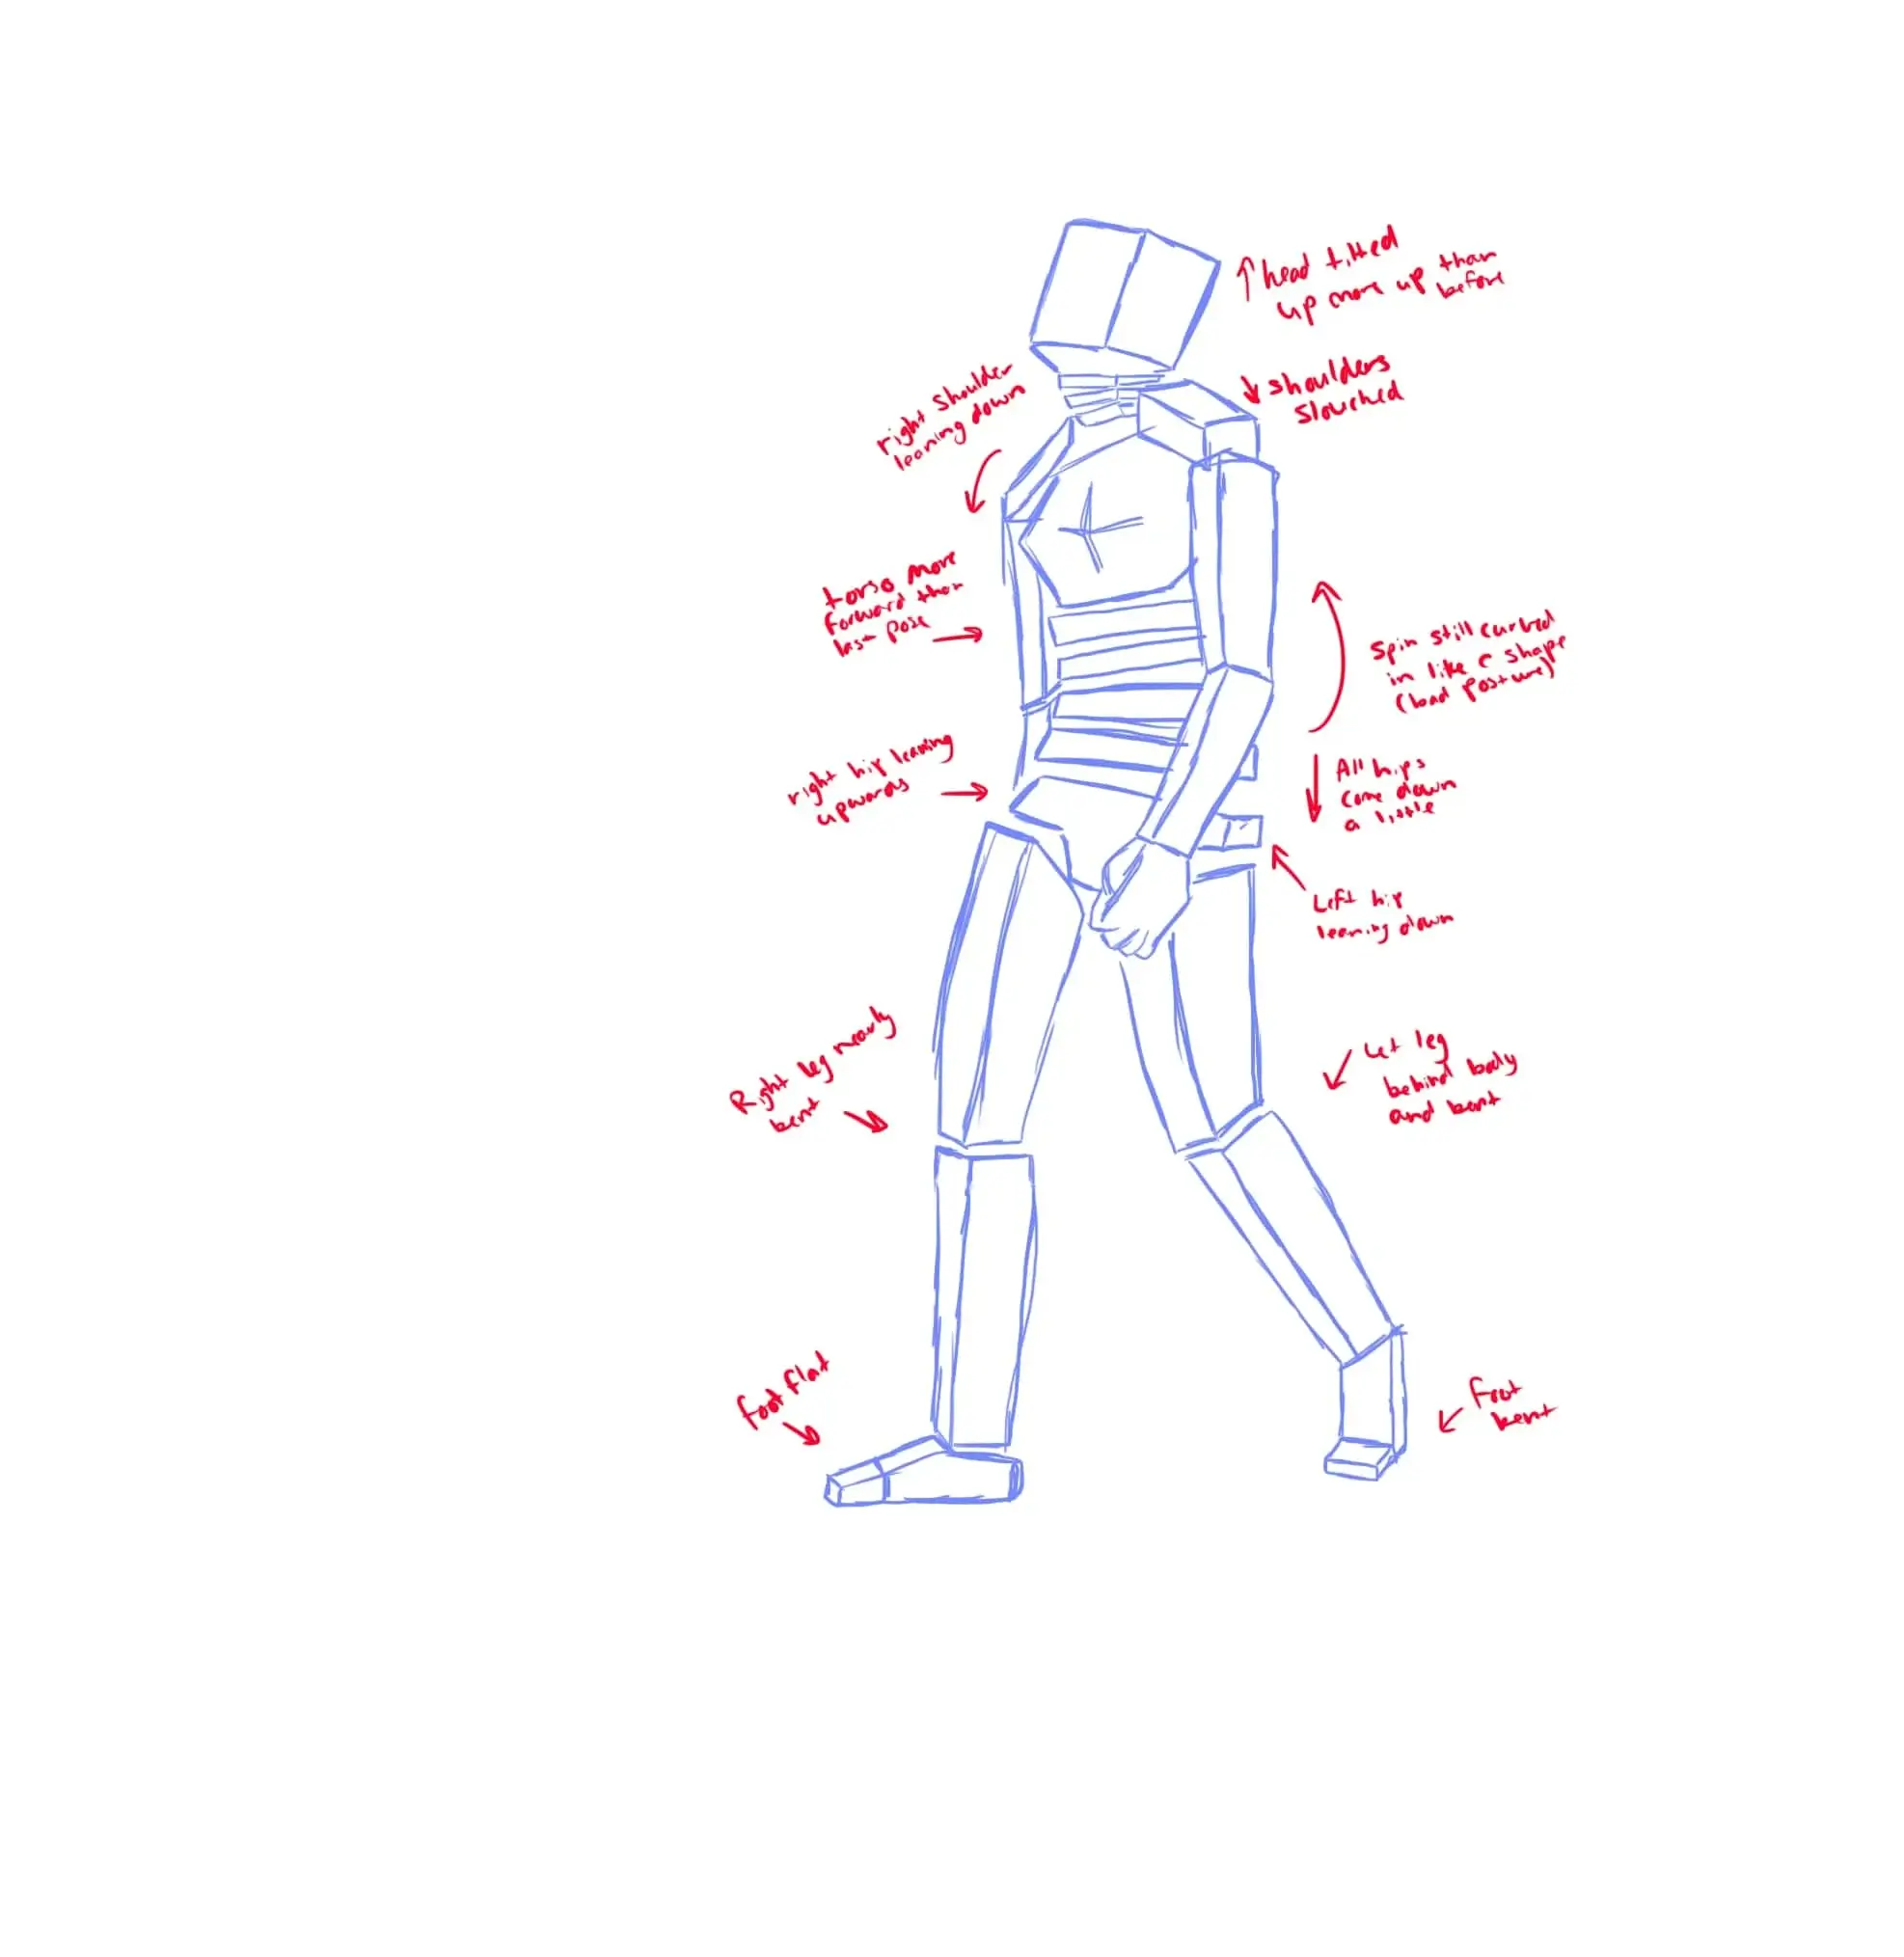 head tilted
up more up than
before
shoulders
slouched
right shoulder
leaning down
torso more
forward than
last pose
Spin still curved
in like c shape
(bad posture)
right hip leaning
upwards
All hips
come down
a little
Left hip
leaning down
Right leg nearly
bent
Let leg
behind body
and bent
foot flat
Foot
bent